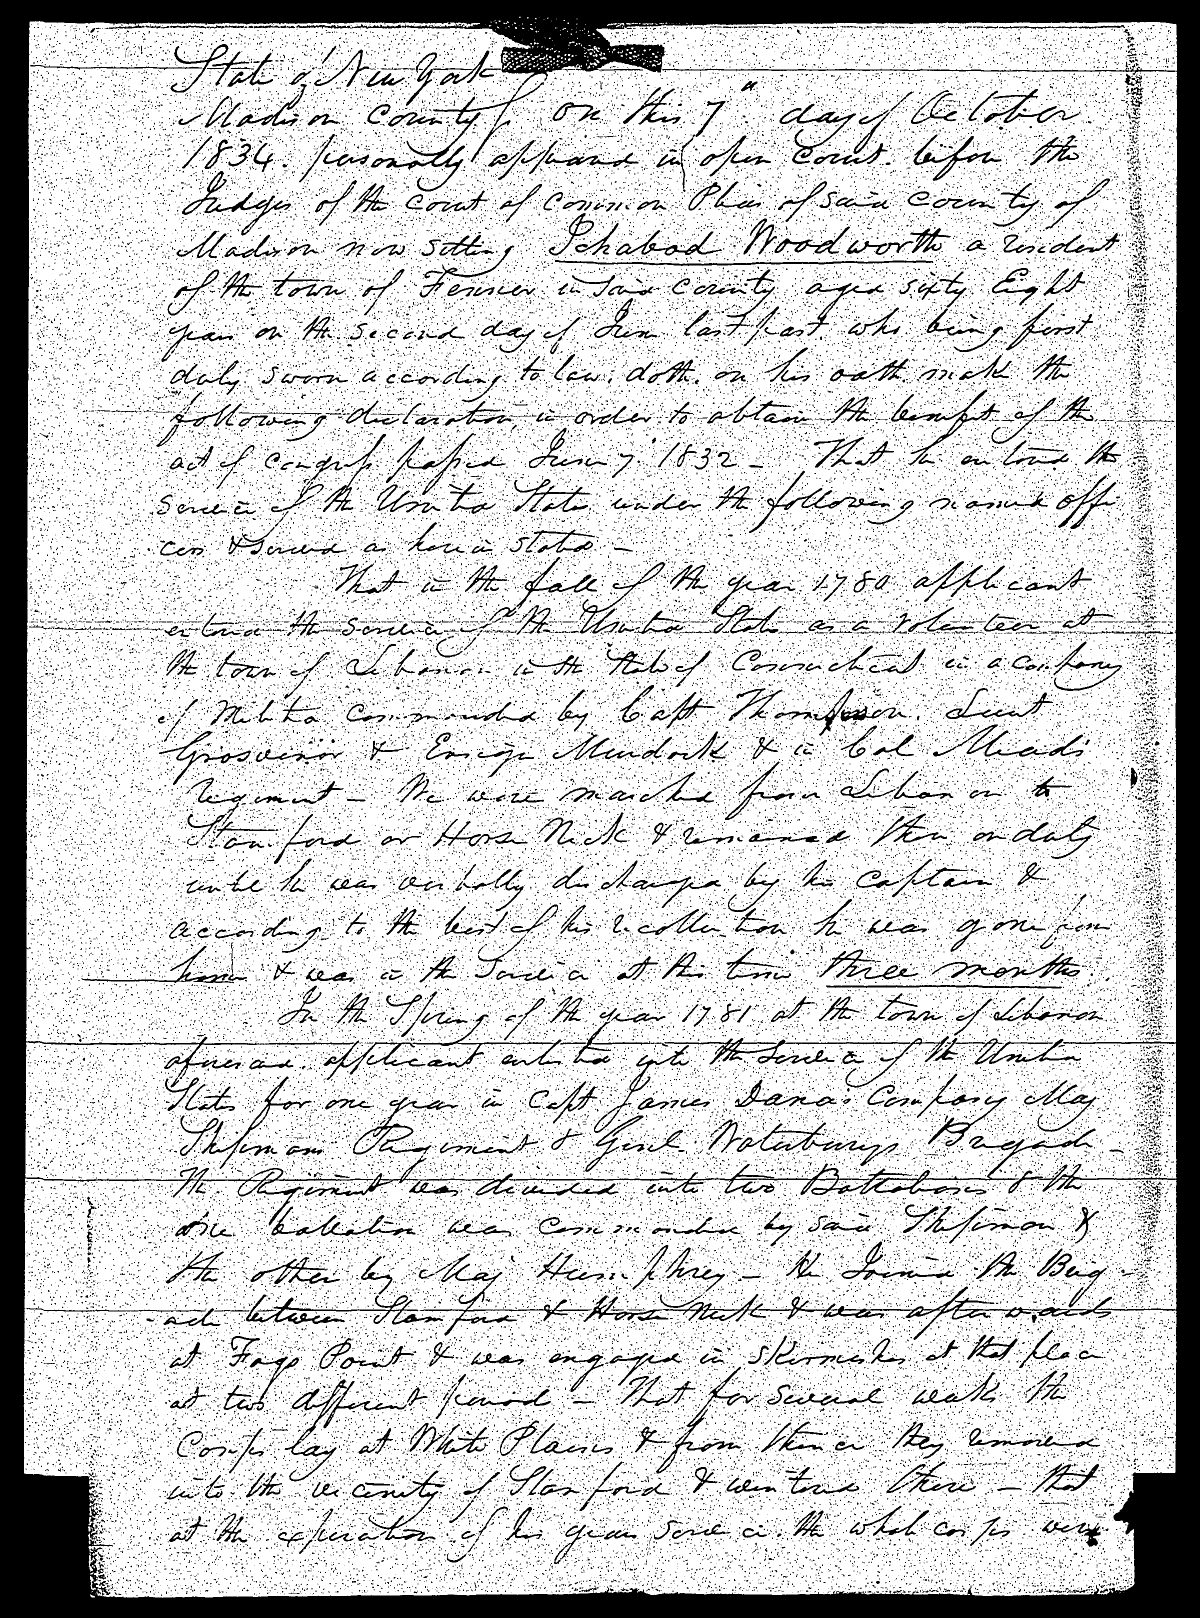 State of New York
Madison County } On this 7th day of October
1834. personally appeared in open court. before the
Judges of the court of common Pleas of said County of
Madison now sitting Ichabod Woodworth a resident
of the town of Fenner in said county aged sixty Eight
years on the second day of June last past. who being first
duly sworn according to law. doth. on his oath make the
following declaration, in order to obtain the benefit of the
act of congress passed June 7. 1832 – That he entered the
service of the United States under the following named offi
cers & served as herein stated –
That in the fall of the year 1780 applicant
entered the service of the United States as a volunteer at
the town of Lebanon in the State of Connecticut in a company
of Militia commanded by Capt Thompson. Lieut
Grosvenor & Ensign Murdock & in Col Meads
Regiment – We were marched from Lebanon to
Stamford or Horse Neck & remained there on duty
until he was verbally discharged by his captain &
according to the best of his recollection he was gone from
home & was in the service at this time three months.
In the Spring of the year 1781 at the town of Lebanon
aforesaid. applicant enlisted into the service of the United
States for one year in Capt James Dana's Company Maj
Shipmans Regiment & Genl. Waterburys Brigade –
The Regiment was divided into two Battalions & the
one battalion was commanded by said Shipman &
the other by Maj Humphrey – He Joined the Brig-
-ade between Stamford & Horse Neck & was afterwards
at Frogs Point & was engaged in skirmishes at that place
at two different period – That for several weeks the
Corps lay at White Plains & from thence they removed
into the vicinity of Stamford & wintered there – that
at the expiration of his years service. the whole corps were